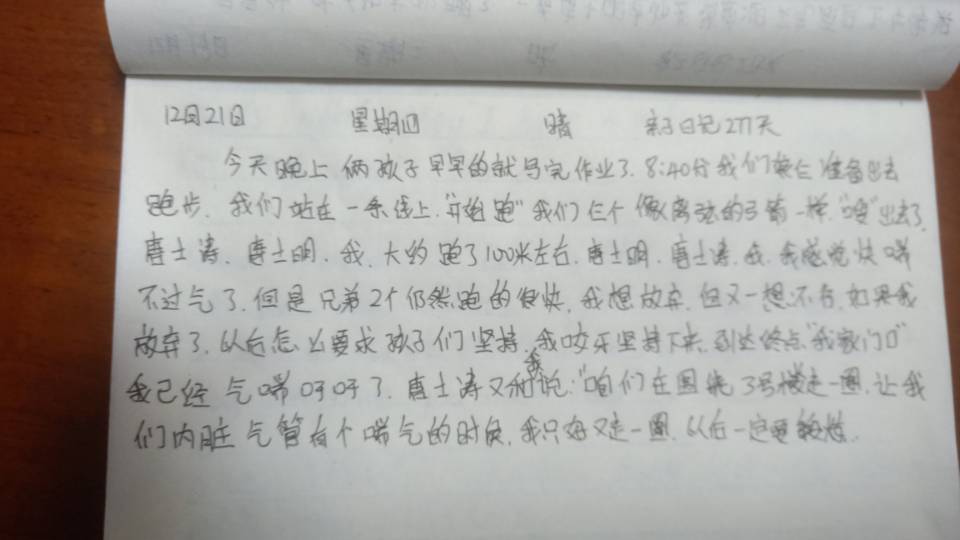 12月21日 星期四 晴 亲子日记277天
今天晚上俩孩子早早的就写完作业了.8:40分我们娘仨准备出去
跑步.我们站在一条线上,"开始跑"我们仨个像离弦的弓箭一样,"嗖"出去了.
唐士涛.唐士明.我.大约跑了100米左右.唐士明.唐士涛.我.我感觉快喘
不过气了.但是兄弟2个仍然跑的很快.我想放弃.但又一想不行.如果我
放弃了.以后怎么要求孩子们坚持.我咬牙坚持下来.到达终点"我家门口"
我已经气喘吁吁了.唐士涛又和我说:"咱们在围绕3号楼走一圈.让我
们内脏气管有个喘气的时候.我只好又走一圈.以后一定要锻炼.